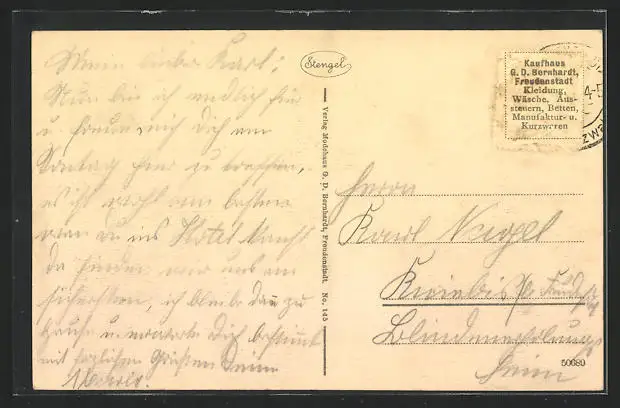 Mein lieber Karl!
Nun bin ich endlich hier
u. freue mich Dich am
Sonntag hier zu treffen,
es ist wohl am besten
wenn Du ins Hotel
da finden wir uns am
sichersten, ich bleibe dann zu
Hause u. erwarte Dich bestimmt
mit herzlichen Grüssen Deine
Stengel
Verlag Modehaus G. D. Bernhardt, Freudenstadt. No. 145
Kaufhaus
G. D. Bernhardt,
Freudenstadt
Kleidung,
Wäsche, Aus-
steuern, Betten,
Manufaktur- u.
Kurzwaren
Herrn
Karl Nagel
Kniebis
Blindenerholungs
heim
50689